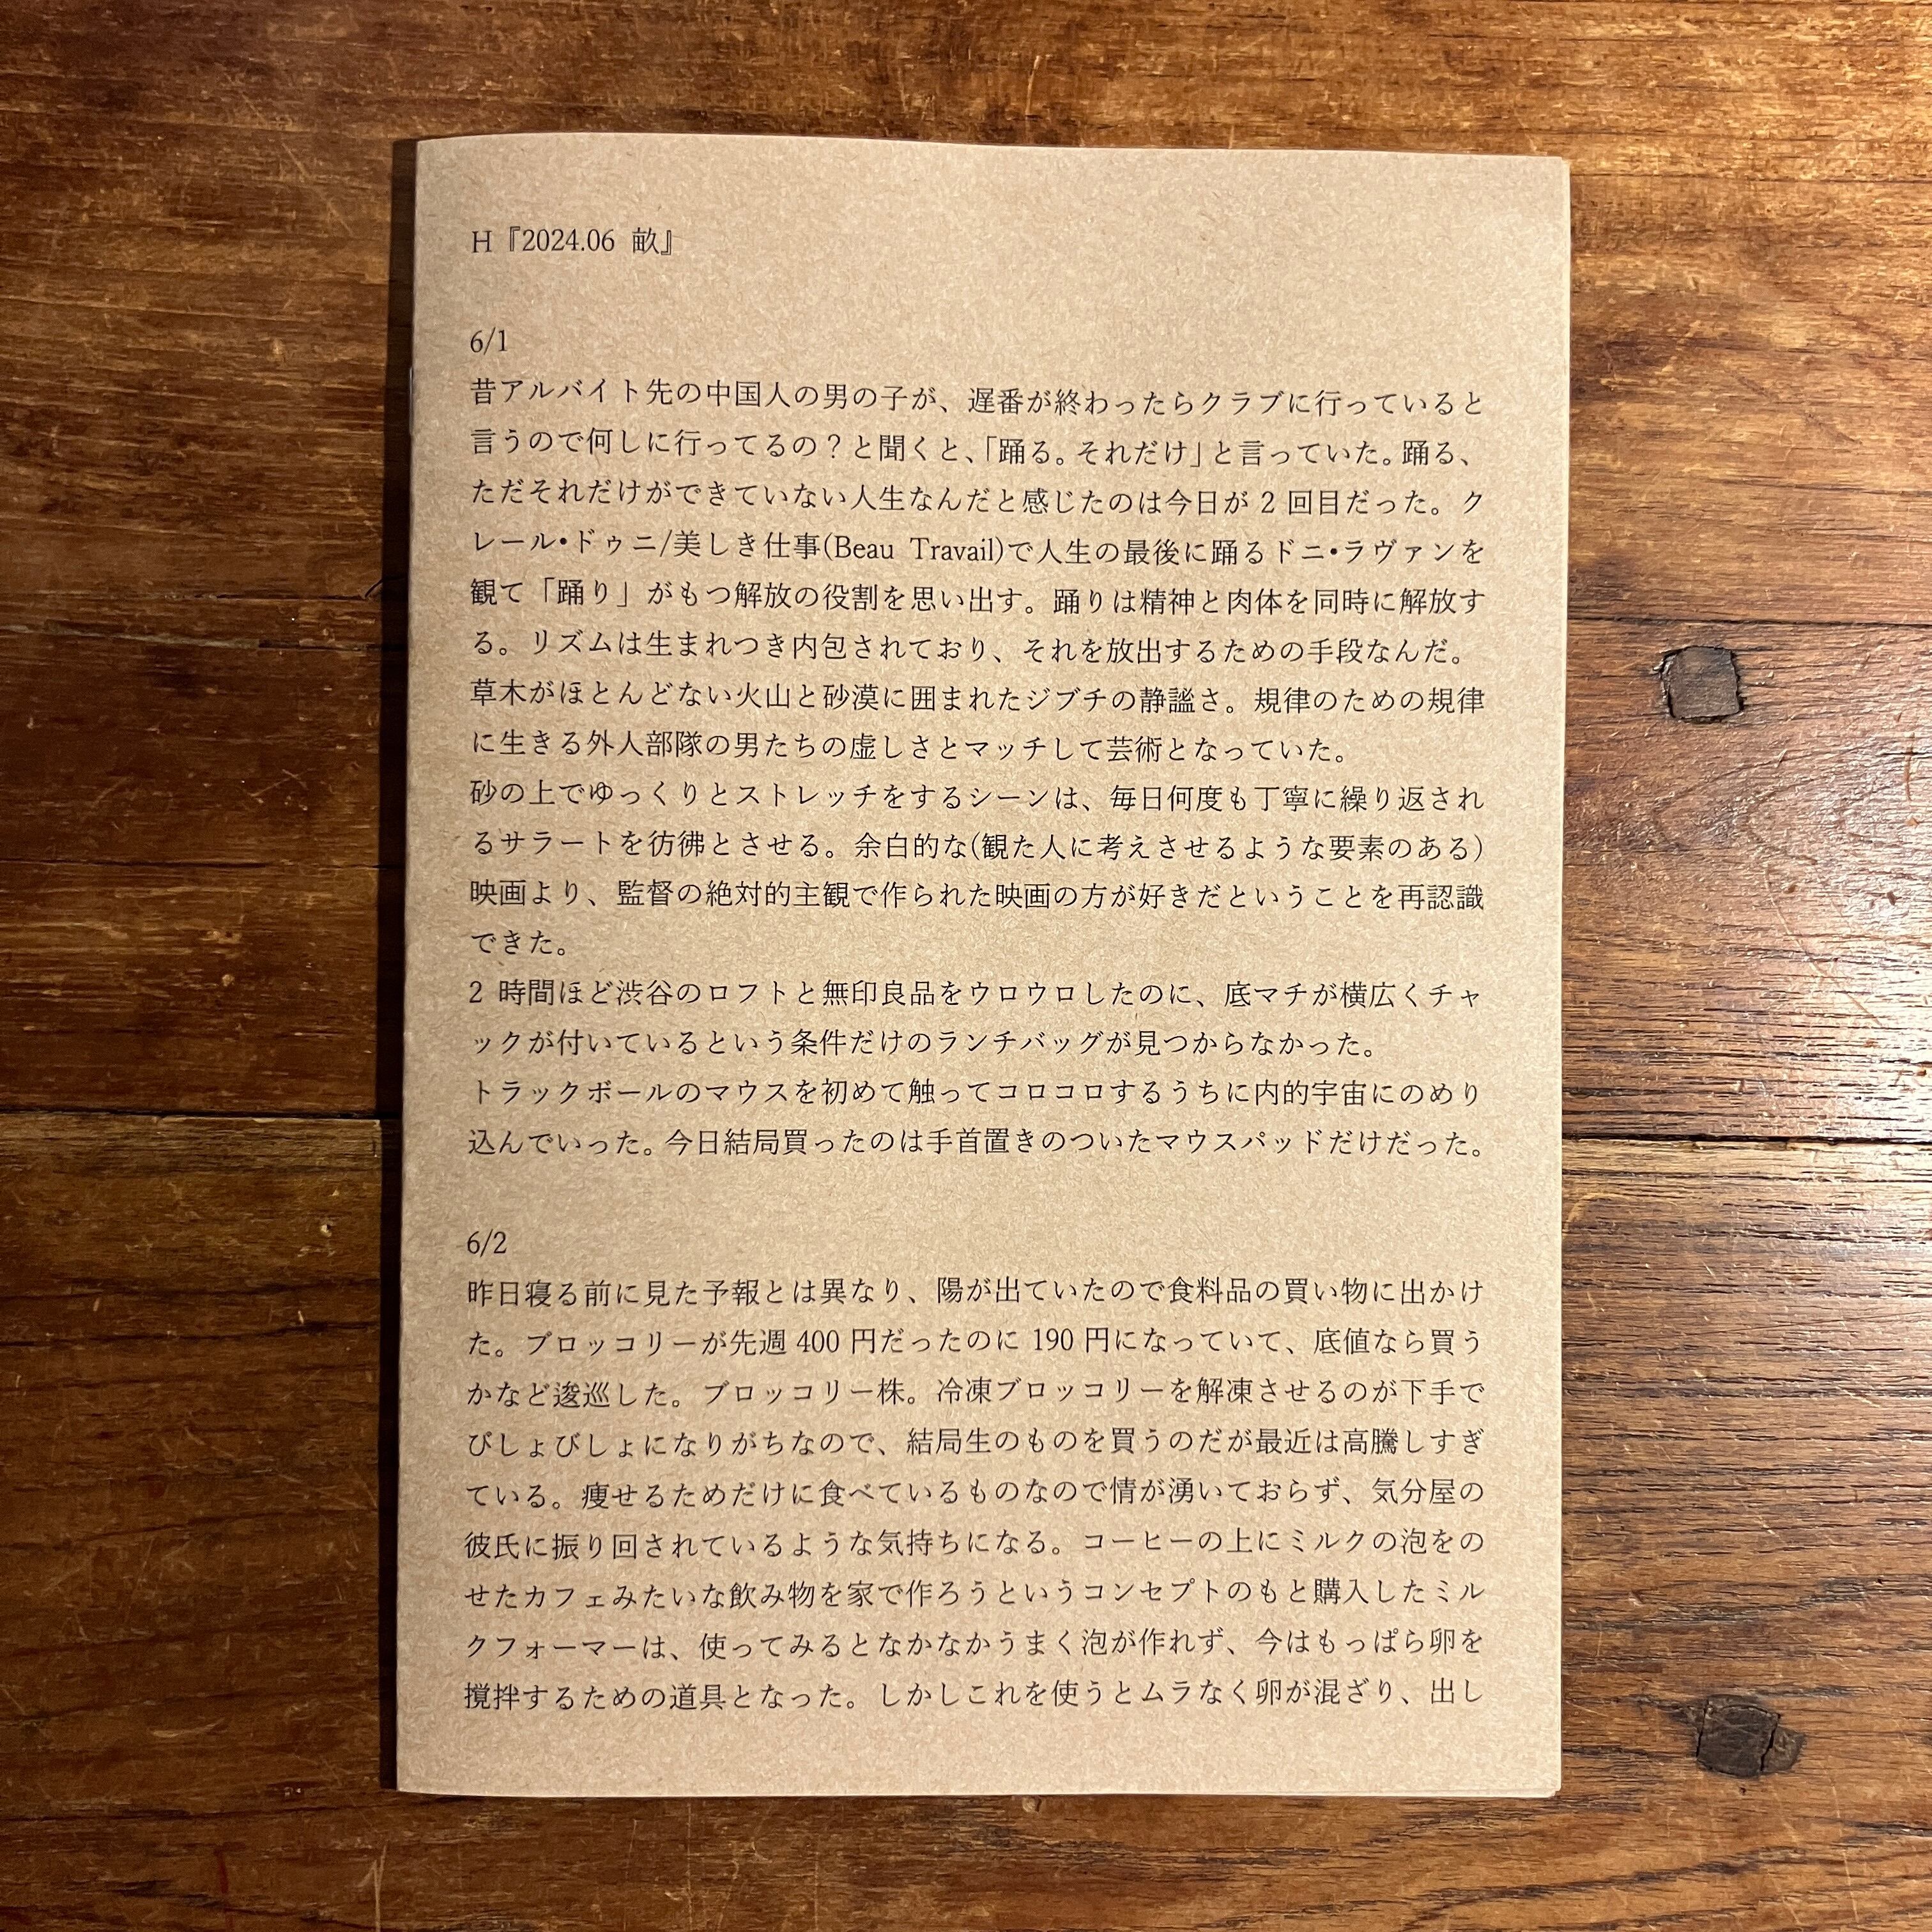 H『2024.06 畝』
6/1
昔アルバイト先の中国人の男の子が、遅番が終わったらクラブに行っていると
言うので何しに行ってるの？と聞くと、「踊る。それだけ」と言っていた。踊る、
ただそれだけができていない人生なんだと感じたのは今日が 2 回目だった。ク
レール・ドゥニ/美しき仕事(Beau Travail)で人生の最後に踊るドニ・ラヴァンを
観て「踊り」がもつ解放の役割を思い出す。踊りは精神と肉体を同時に解放す
る。リズムは生まれつき内包されており、それを放出するための手段なんだ。
草木がほとんどない火山と砂漠に囲まれたジブチの静謐さ。規律のための規律
に生きる外人部隊の男たちの虚しさとマッチして芸術となっていた。
砂の上でゆっくりとストレッチをするシーンは、毎日何度も丁寧に繰り返され
るサラートを彷彿とさせる。余白的な(観た人に考えさせるような要素のある)
映画より、監督の絶対的主観で作られた映画の方が好きだということを再認識
できた。
2 時間ほど渋谷のロフトと無印良品をウロウロしたのに、底マチが横広くチャ
ックが付いているという条件だけのランチバッグが見つからなかった。
トラックボールのマウスを初めて触ってコロコロするうちに内的宇宙にのめり
込んでいった。今日結局買ったのは手首置きのついたマウスパッドだけだった。
6/2
昨日寝る前に見た予報とは異なり、陽が出ていたので食料品の買い物に出かけ
た。ブロッコリーが先週 400 円だったのに 190 円になっていて、底値なら買う
かなど逡巡した。ブロッコリー株。冷凍ブロッコリーを解凍させるのが下手で
びしょびしょになりがちなので、結局生のものを買うのだが最近は高騰しすぎ
ている。痩せるためだけに食べているものなので情が湧いておらず、気分屋の
彼氏に振り回されているような気持ちになる。コーヒーの上にミルクの泡をの
せたカフェみたいな飲み物を家で作ろうというコンセプトのもと購入したミル
クフォーマーは、使ってみるとなかなかうまく泡が作れず、今はもっぱら卵を
撹拌するための道具となった。しかしこれを使うとムラなく卵が混ざり、出し